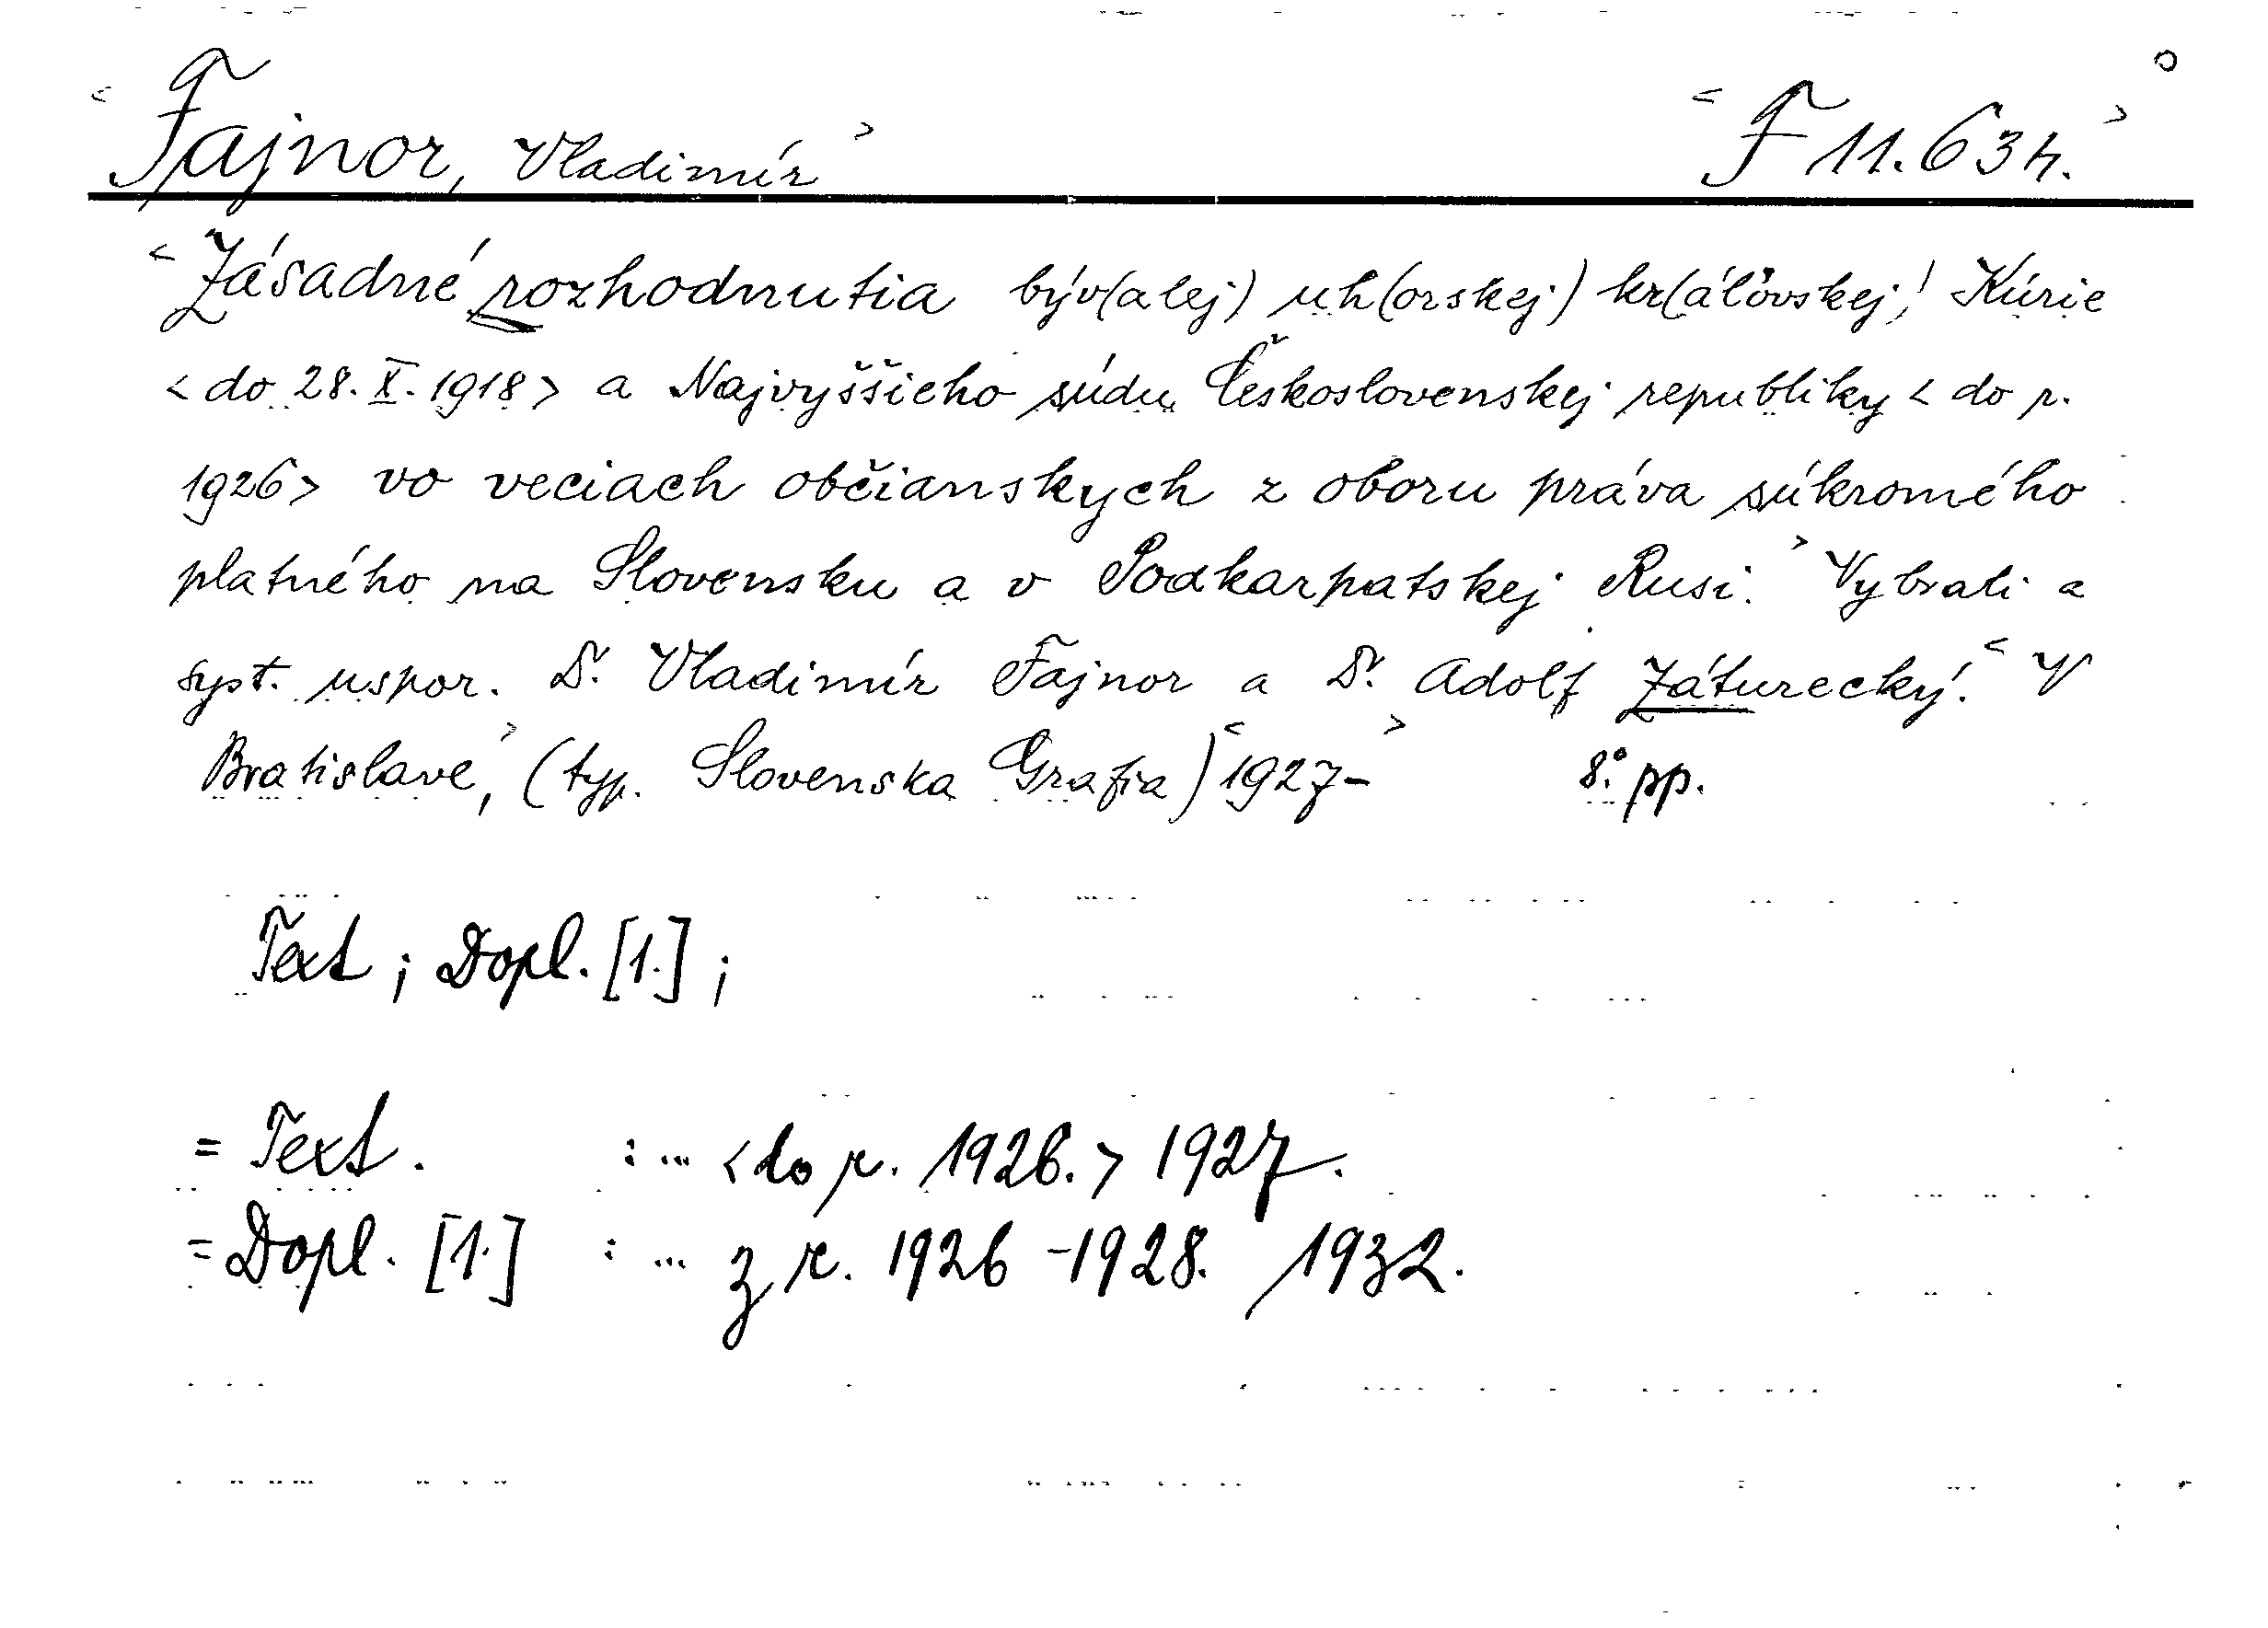 < Fajnor, Vladimír > < F 11.634. >
< Zásadné rozhodnutia býv(alej) uh(orskej) kr(áľovskej) Kúrie
< do 28. X. 1918 > a Najvyššieho súdu Československej republiky < do r.
1926 > vo veciach občianskych z oboru práva súkromého
platného na Slovensku a v Podkarpatskej Rusi. > Vybrali a
syst. uspor. Dr. Vladimír Fajnor a Dr. Adolf Záturecký. < V
Bratislave, > (typ. Slovenska Grafia) < 1927- > 8° pp.
Text ; Dopl. [1.] ;
= Text. : ... < do r. 1926. > 1927.
= Dopl. [1.] : ... z r. 1926 - 1928. 1932.